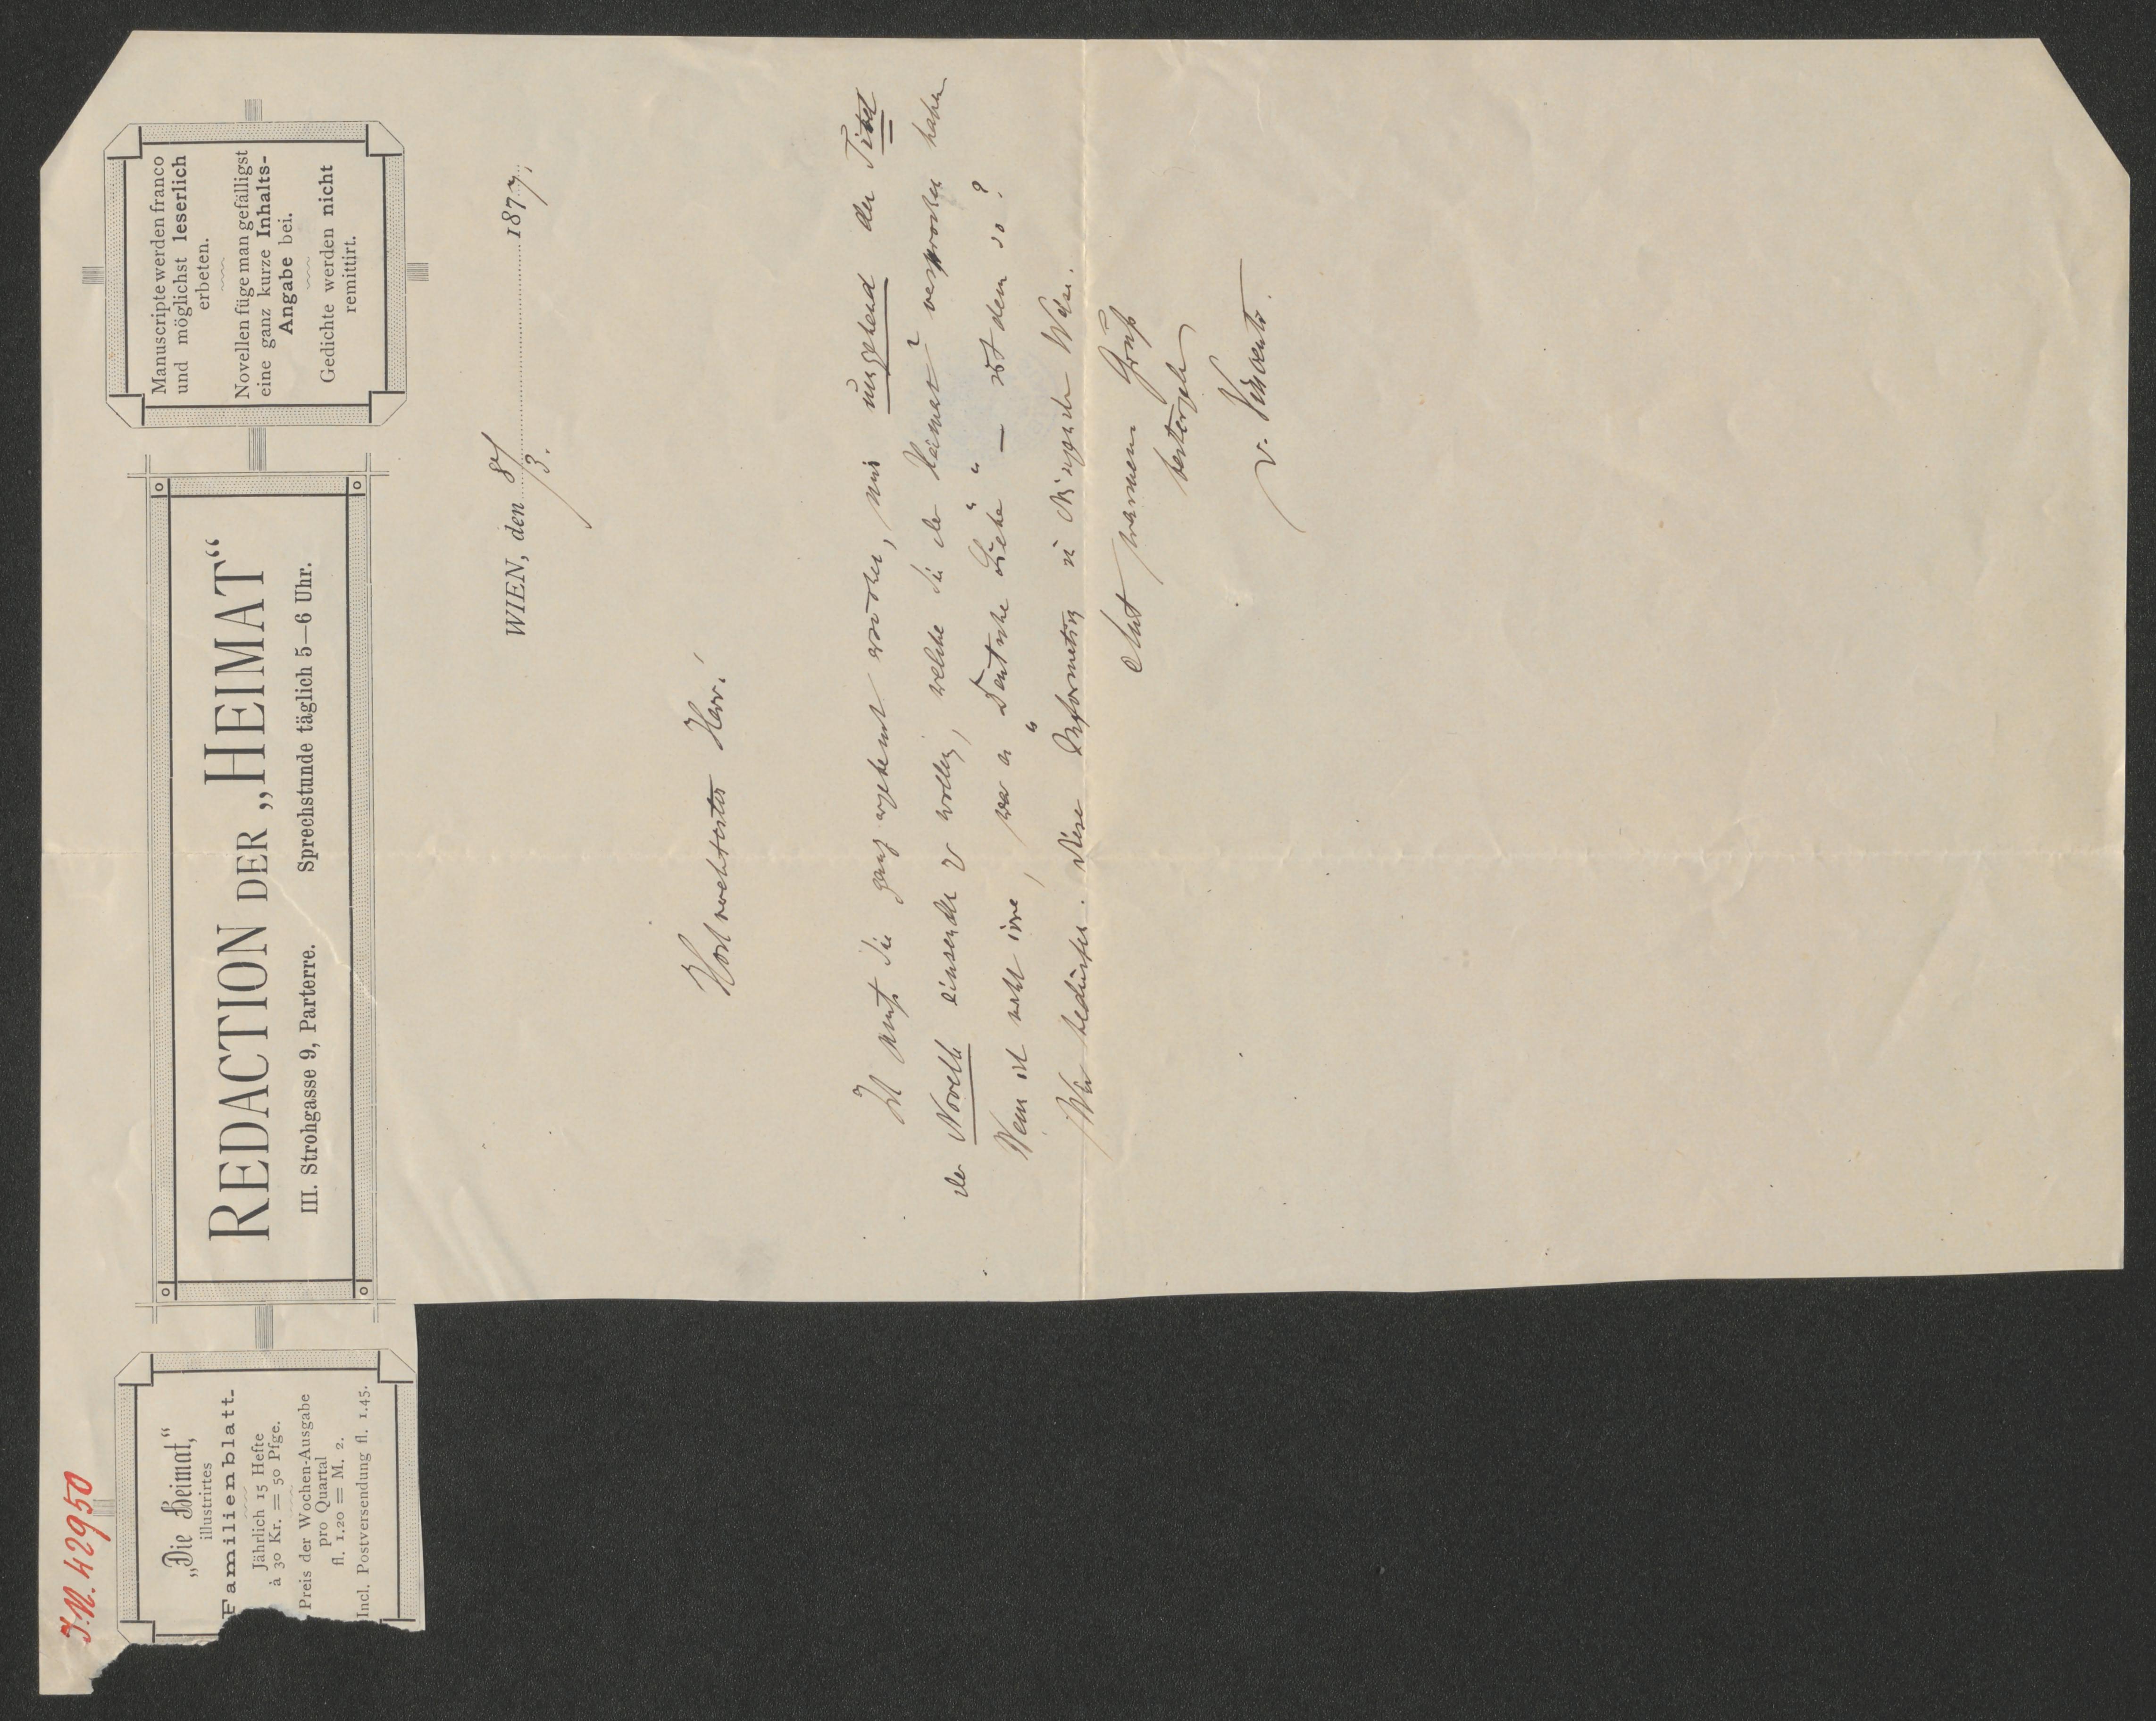 J.N. 42950
„Die Heimat,“
illustrirtes
Familienblatt.
Jährlich 15 Hefte
à 30 Kr. = 50 Pfge.
Preis der Wochen-Ausgabe
pro Quartal
fl. 1.20 = M. 2.
Incl. Postversendung fl. 1.45.
REDACTION DER „HEIMAT“
III. Strohgasse 9, Parterre. Sprechstunde täglich 5—6 Uhr.
Manuscripte werden franco
und möglichst leserlich
erbeten.
Novellen füge man gefälligst
eine ganz kurze Inhalts-
Angabe bei.
Gedichte werden nicht
remittirt.
WIEN, den 8/3. 1877.
Hochverehrtester Herr!
Ich muß Sie ganz ergebenst ersuchen, mir umgehend den Titel
der Novelle einsenden z wollen, welche Sie der Heimat versprochen haben
Wenn ich nicht irre, war es „Deutsche Liebe“ — ist dem so?
Wir bedürfen diese Information in dringender Weise.
Mit warmem Gruß
v. Vincenti.